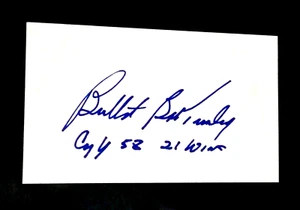 Bullet Bob Turley
Cy Y 58 21 Wins